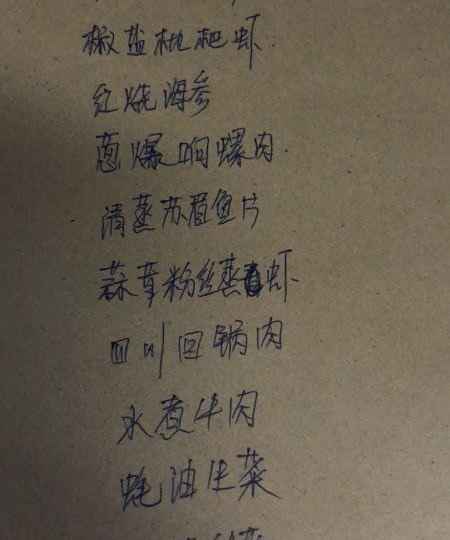 椒盐枇杷虾
红烧海参
葱爆响螺肉
清蒸苏眉鱼片
蒜茸粉丝蒸虾
四川回锅肉
水煮牛肉
蚝油生菜